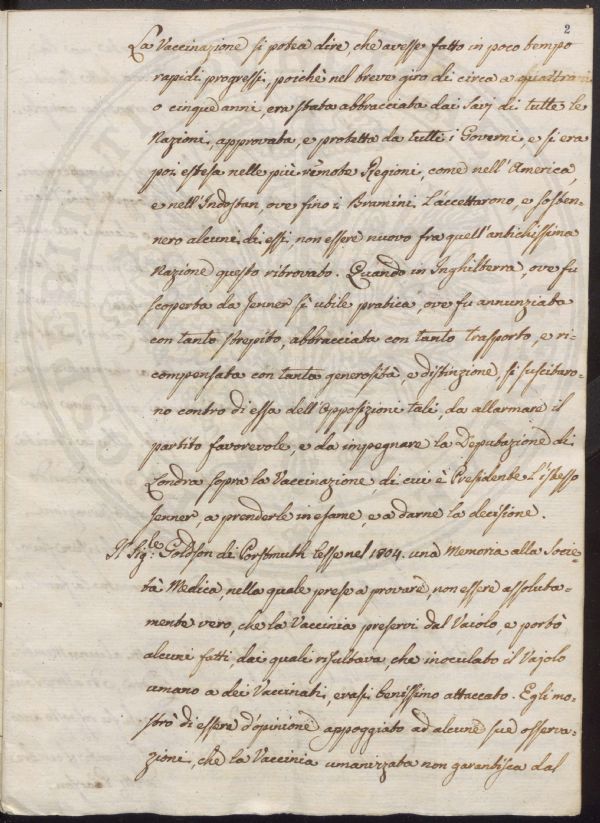 2
La Vaccinazione si potea dire, che avesse fatto in poco tempo
rapidi progressi, poichè nel breve giro di circa a quattro
o cinque anni, era stata abbracciata dai Savj di tutte le
Nazioni, approvata, e protetta da tutti i Governi, e si era
poi estesa nelle più remote Regioni, come nell'America,
e nell'Indostan, ove fino i Bramini l'accettarono, e sosten=
nero alcuni di essi, non essere nuovo fra quell'antichissima
Nazione questo ritrovato. Quando in Inghilterra, ove fu
scoperta da Jenner sì utile pratica, ove fu annunziata
con tanto strepito, abbracciata con tanto trasporto, e ri=
compensata con tanta generosità, e distinzione, si suscitaro=
no contro di essa dell'Opposizioni tali, da allarmare il
partito favorevole, e da impegnare la Deputazione di
Londra sopra la Vaccinazione, di cui è Presidente l'istesso
Jenner, a prenderle in esame, e a darne la decisione.
Il Sig.le Goldson di Portsmuth lesse nel 1804. una Memoria alla Socie=
tà Medica, nella quale prese a provare, non essere assoluta=
mente vero, che la Vaccinia preservi dal Vajolo, e portò
alcuni fatti, dai quali risultava, che inoculato il Vajolo
umano a dei Vaccinati, erasi benissimo attaccato. Egli mo=
strò di essere d'opinione appoggiato ad alcune sue osserva=
zioni, che la Vaccinia umanizzata non garantisca dal